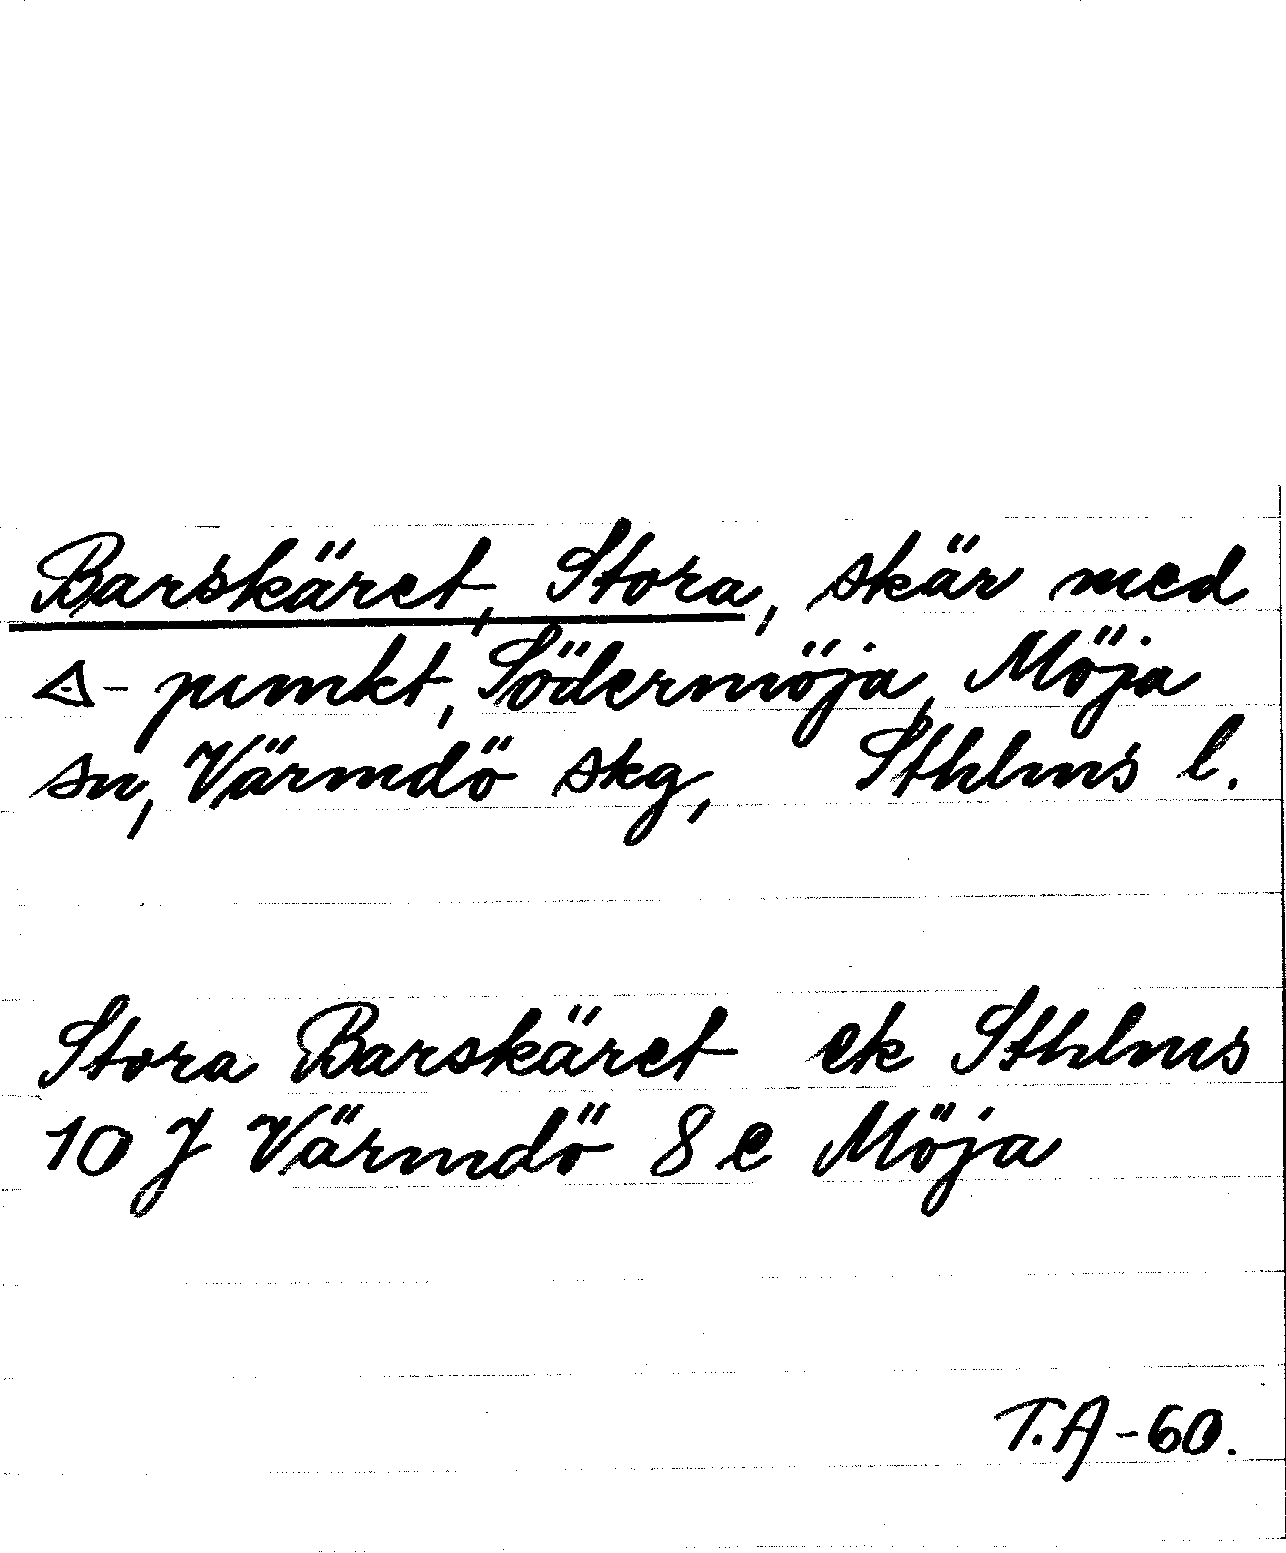 Barskäret, Stora, skär med
△-punkt, Södermöja, Möja
sn, Värmdö skg, Sthlms l.
Stora Barskäret ek Sthlms
10 J Värmdö 8 e Möja
T.A-60.